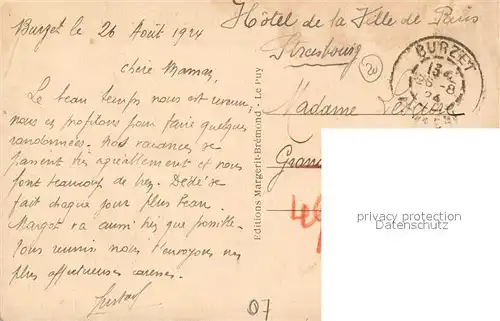 Burzet le 26 Août 1924
chère Maman,
Le beau temps nous est revenu,
nous en profitons pour faire quelques
randonnées. Nos vacances se
passent très agréablement et nous
font beaucoup de bien. Dédé se
fait chaque jour plus beau.
Margot va aussi bien que possible.
Tous réunis nous t'envoyons nos
plus affectueuses caresses.
Editions Margerit-Brémond - Le Puy
Hôtel de la Ville de Paris
Strasbourg
20
BURZET
26-8
24
Madame
Grand
privacy protection
Datenschutz
07